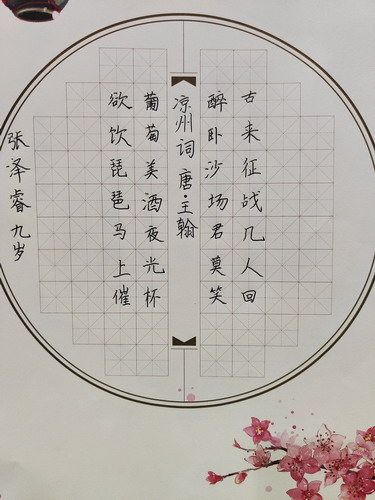 凉州词 唐·王翰
葡萄美酒夜光杯
欲饮琵琶马上催
醉卧沙场君莫笑
古来征战几人回
张泽睿九岁